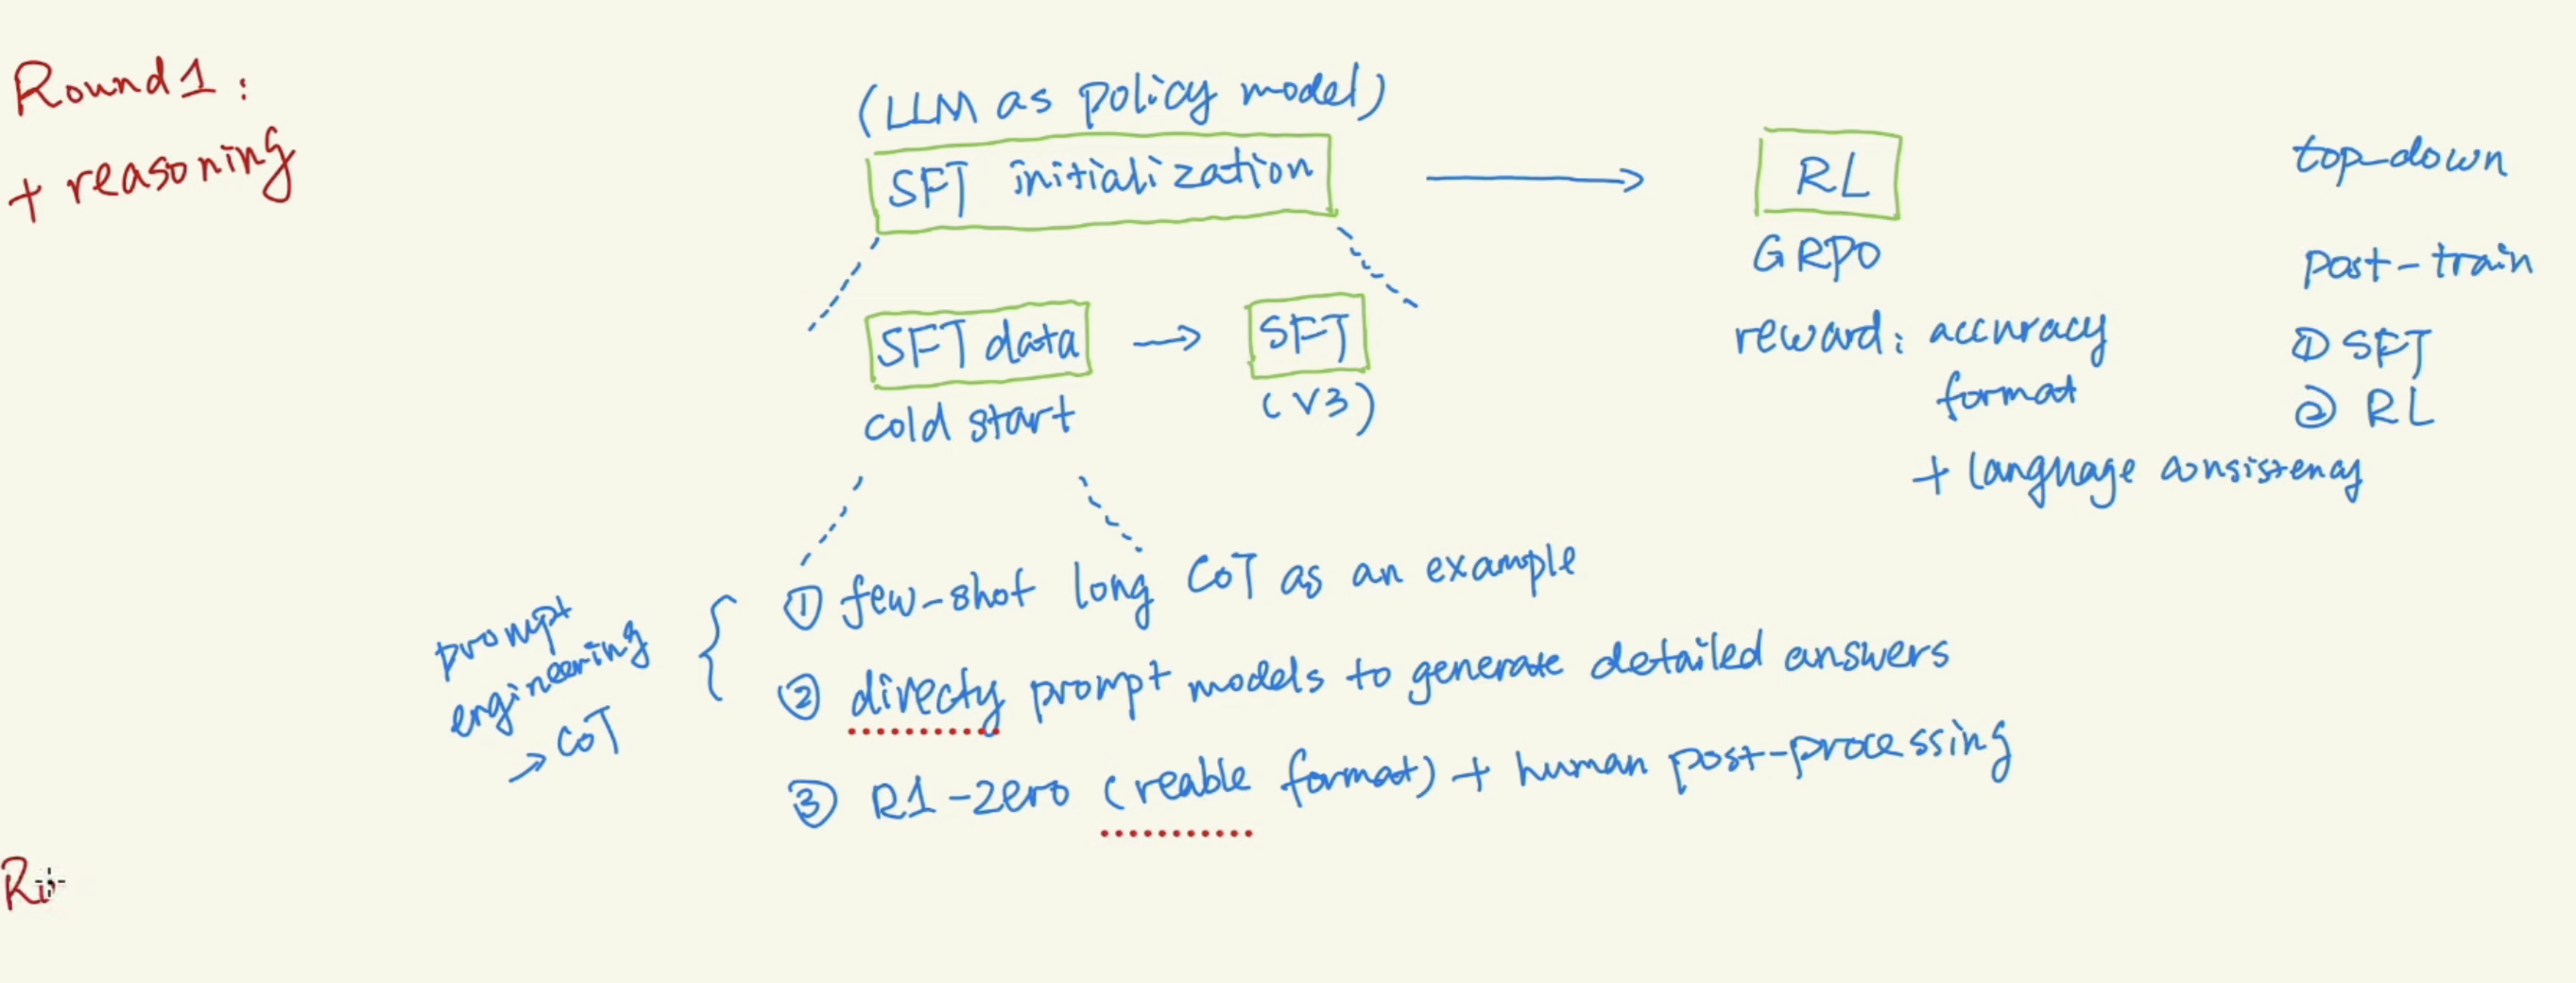 Round1:
+ reasoning
(LLM as policy model)
SFT initialization
RL
GRPO
reward: accuracy
format
+ language consistency
top-down
post-train
① SFT
② RL
SFT data
cold start
SFT
(V3)
prompt
engineering
→ CoT
① few-shot long CoT as an example
② directy prompt models to generate detailed answers
③ R1-zero (reable format) + human post-processing